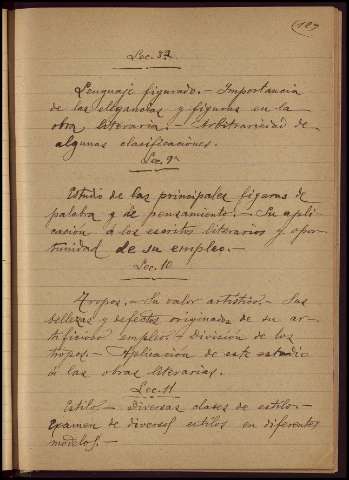 (127
Lec. 8ª
Lenguaje figurado.- Importancia
de las elegancias y figuras en la
obra literaria.- Arbitrariedad de
algunas clasificaciones.
Lec. 9ª
Estudio de las principales figuras de
palabra y de pensamiento.- Su apli-
cación á los escritos literarios y opor-
tunidad de su empleo.-
Lec. 10
Tropos.- Su valor artístico.- Sus
bellezas y defectos originados de su ar-
tificioso empleo.- División de los
tropos.- Aplicación de este estudio
á las obras literarias.
Lec. 11
Estilo.- Diversas clases de estilo.-
Examen de diversos estilos en diferentes
modelos.-